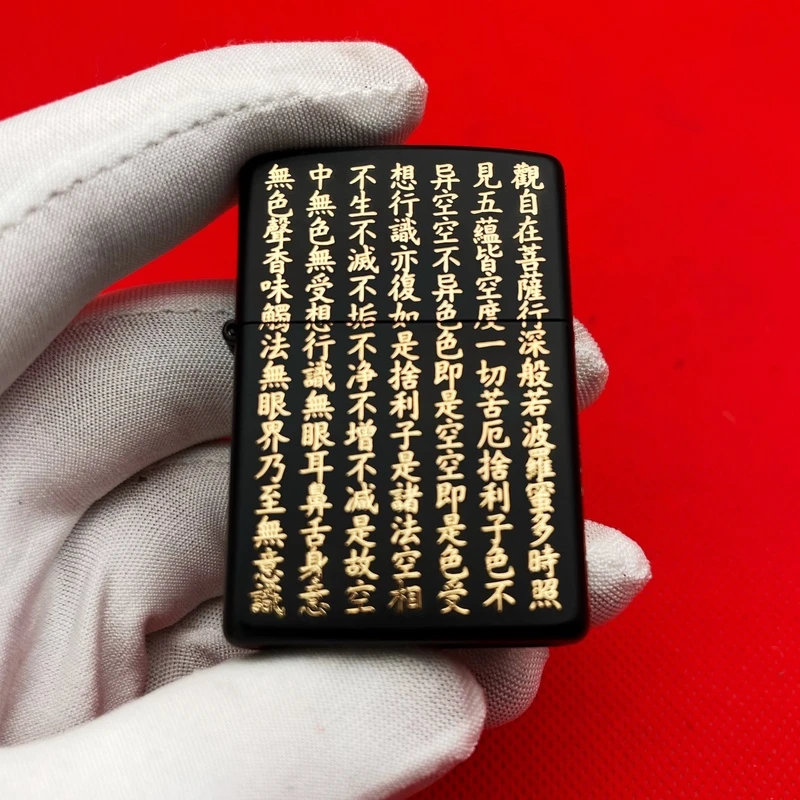 觀自在菩薩行深般若波羅蜜多時照
見五蘊皆空度一切苦厄捨利子色不
异空空不异色色即是空空即是色受
想行識亦復如是捨利子是諸法空相
不生不滅不垢不净不增不减是故空
中無色無受想行識無眼耳鼻舌身意
無色聲香味觸法無眼界乃至無意識